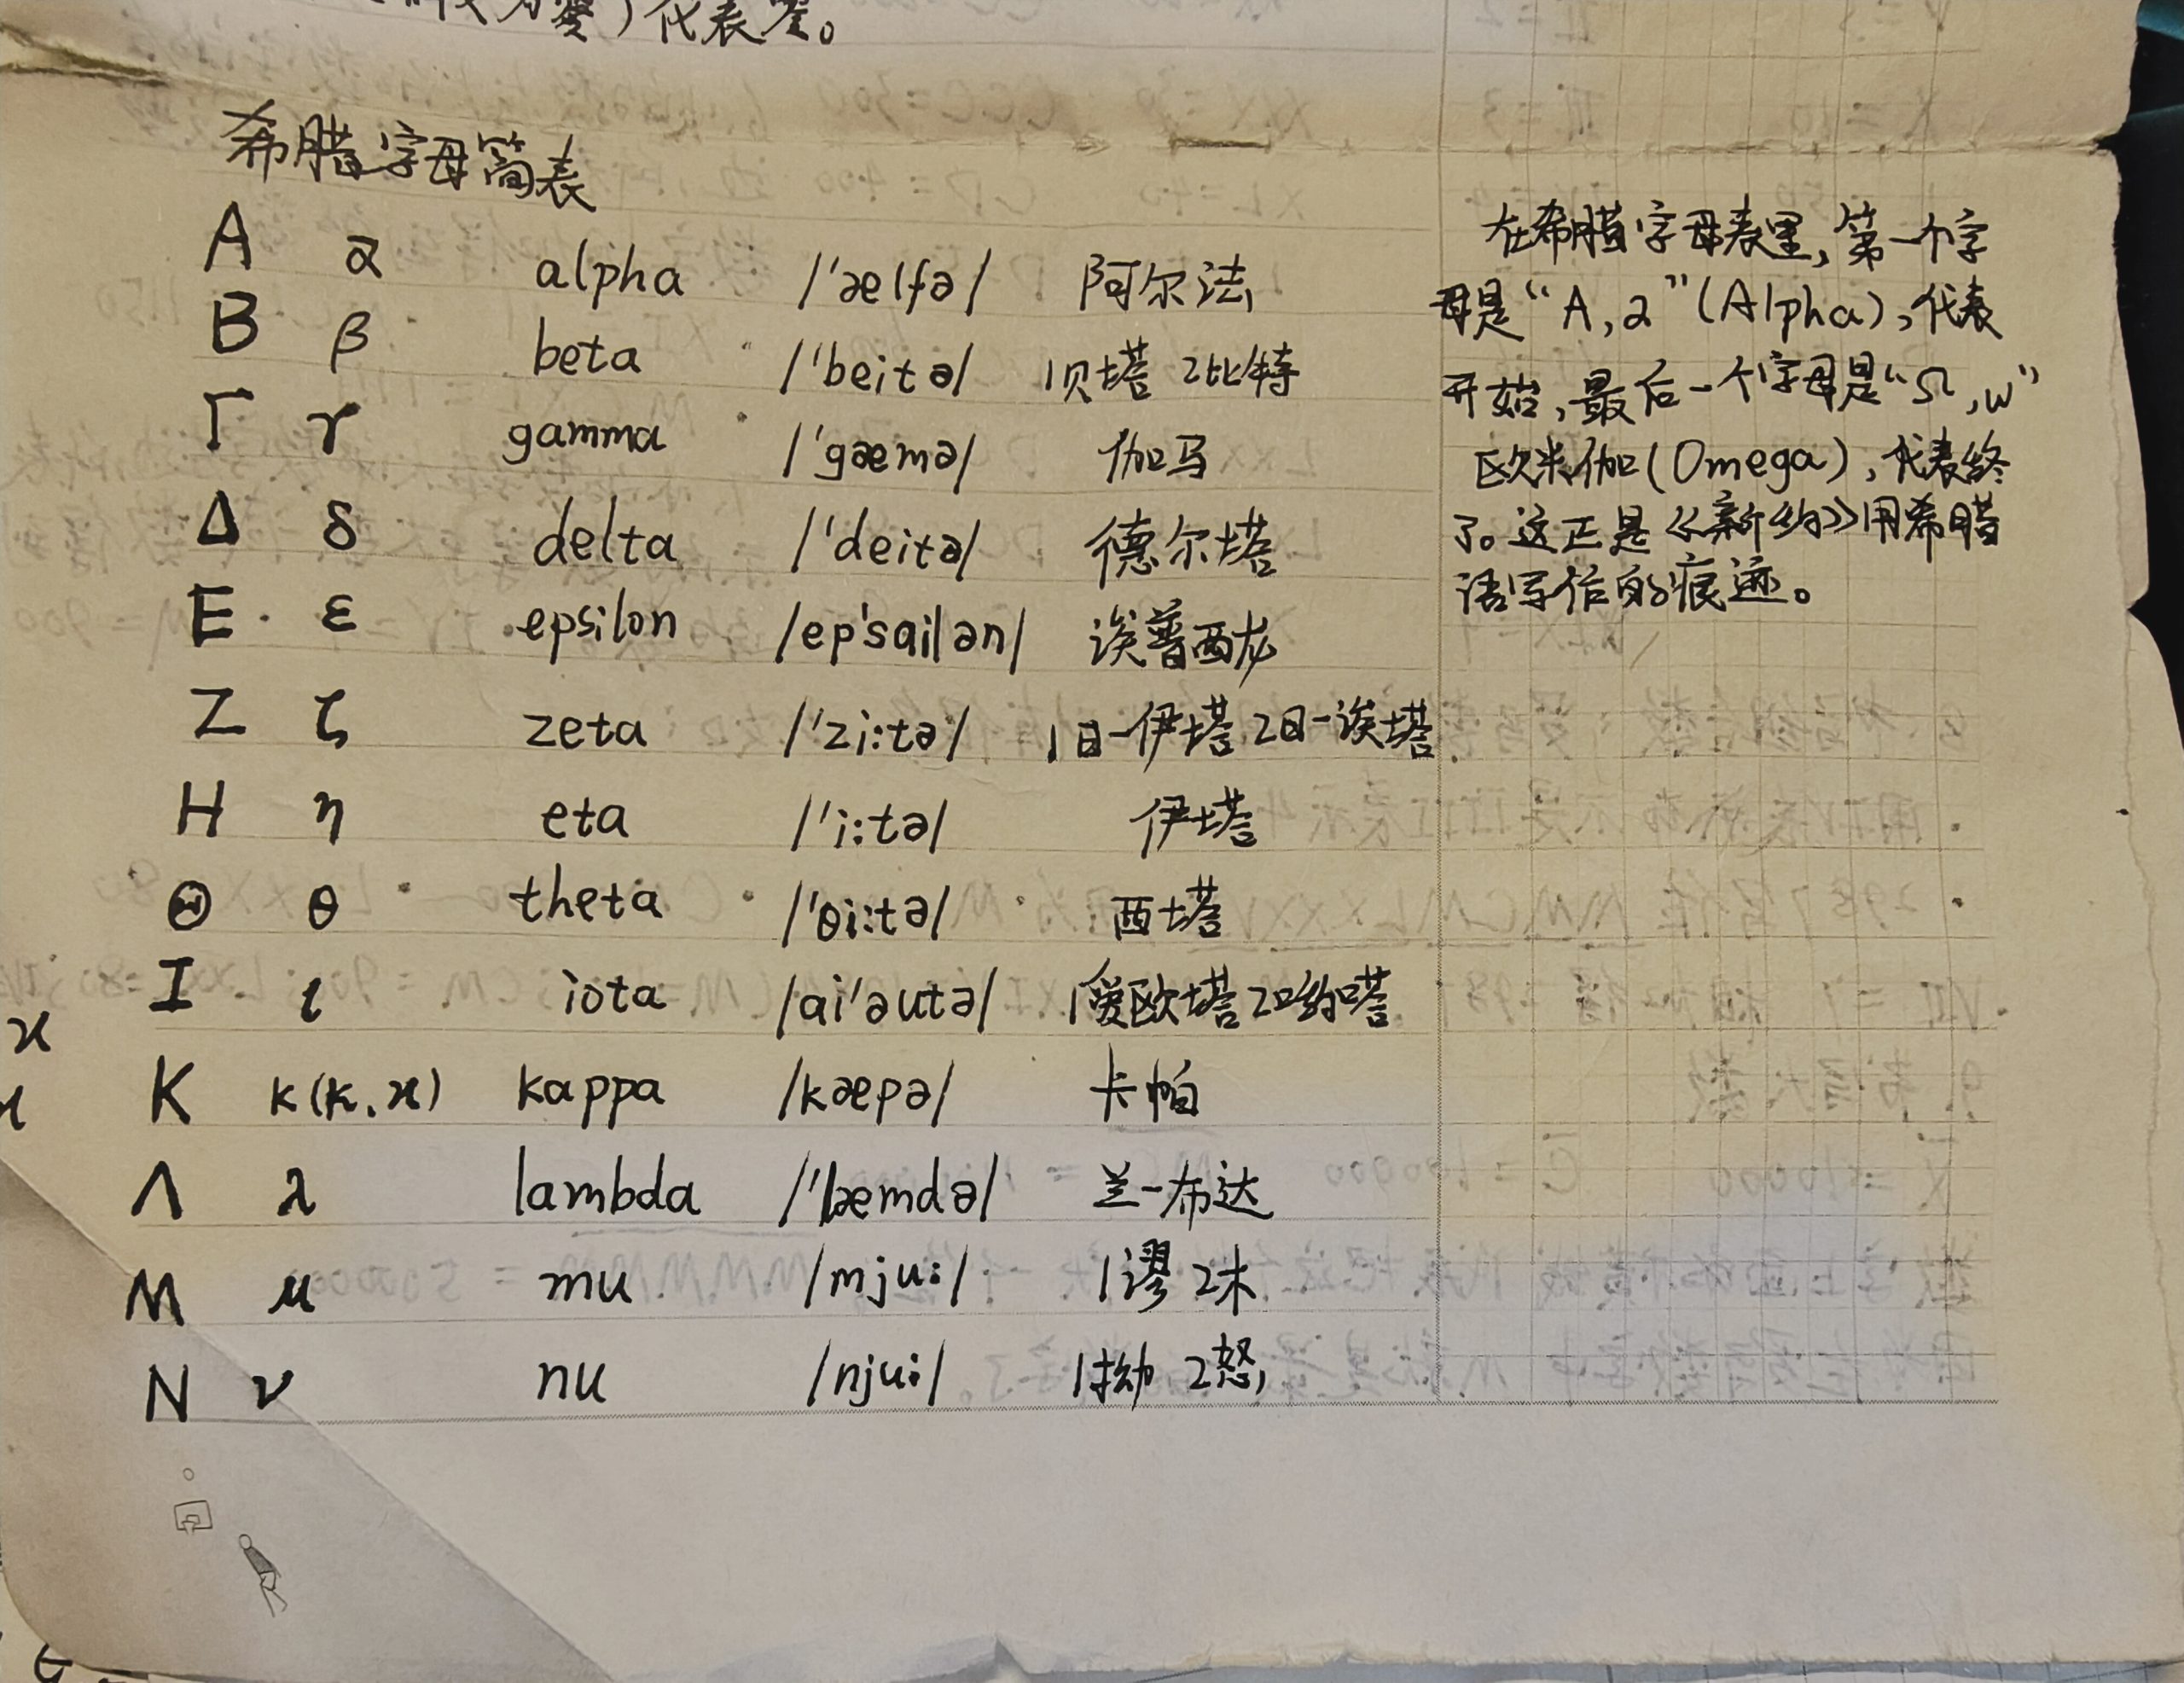 代表零。
希腊字母简表
Α α alpha /'ælfə/ 阿尔法
Β β beta /'beitə/ 1贝塔 2比特
Γ γ gamma /'gæmə/ 伽马
Δ δ delta /'deitə/ 德尔塔
Ε ε epsilon /ep'sailən/ 诶普西龙
Ζ ζ zeta /'zi:tə/ 1日-伊塔 2日-诶塔
Η η eta /'i:tə/ 伊塔
Θ θ theta /'θi:tə/ 西塔
Ι ι iota /ai'əutə/ 1爱欧塔 2哟嗒
Κ k(κ,ϰ) kappa /kæpə/ 卡帕
Λ λ lambda /'læmdə/ 兰-布达
Μ μ mu /mju:/ 1谬 2木
Ν ν nu /nju:/ 1拗 2怒
在希腊字母表里,第一个字
母是“A,α”(Alpha),代表
开始,最后一个字母是“Ω,ω”
欧米伽(Omega),代表终
了。这正是《新约》用希腊
语写作的痕迹。